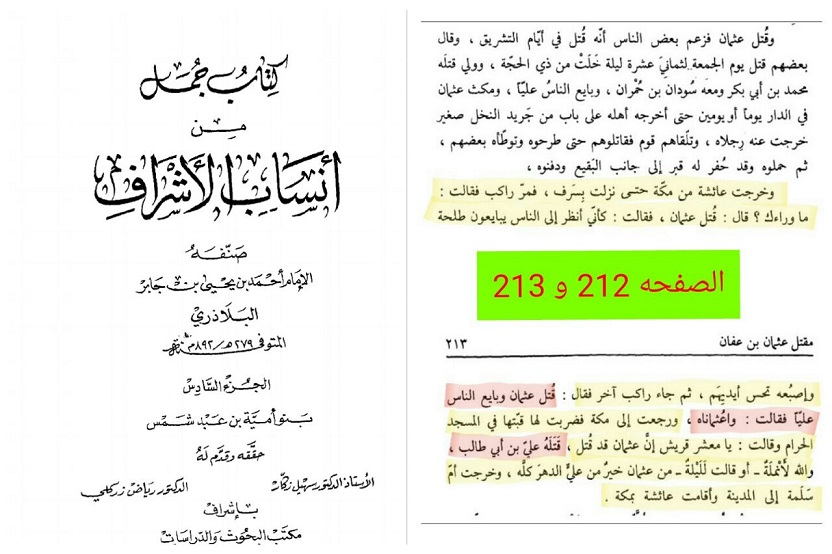 كتاب جمل
من
أنساب الأشراف
صنّفه
الإمام أحمد بن يحيى بن جابر
البلاذري
المتوفى ٢٧٩هـ/٨٩٢م
الجزء السادس
بنو أمية بن عبد شمس
حققه وقدم له
الأستاذ الدكتور سهيل زكار الدكتور رياض زركلي
بإشراف
مكتب البحوث والدراسات
وقُتل عثمان فزعم بعض الناس أنّه قُتل في أيّام التشريق ، وقال
بعضهم قتل يوم الجمعة لثمانيَ عشرة ليلة خَلَتْ من ذي الحجّة ، وولي قتلَه
محمد بن أبي بكر ومعه سُودان بن حُمْران ، وبايع الناسُ عليّاً ، ومكث عثمان
في الدار يوماً أو يومين حتى أخرجه أهله على باب من جَريد النخل صغير
خرجت عنه رِجلاه ، وتلقّاهم قوم فقاتلوهم حتى طرحوه وتوطّأه بعضهم ،
ثم حملوه وقد حُفر له قبر إلى جانب البَقيع ودفنوه ،
وخرجت عائشة من مكة حتى نزلت بِسَرف ، فمرّ راكب فقالت :
ما وراءك ؟ قال : قُتل عثمان ، فقالت : كأنّي أنظر إلى الناس يبايعون طلحة
الصفحه 212 و 213
مقتل عثمان بن عفان ٢١٣
وإصبُعه تحس أيديهَم ، ثم جاء راكب آخر فقال : قُتل عثمان وبايع الناس
عليّاً فقالت : واعُثماناه ، ورجعت إلى مكة فضربت لها قبّتها في المسجد
الحرام وقالت : يا معشر قريش إنّ عثمان قد قُتل ، قَتَلَهُ عليّ بن أبي طالب ،
والله لَأُنملَةٌ ـ أو قالت لَلَيْلةٌ ـ من عثمان خيرٌ من عليٍّ الدهرَ كلَّه ، وخرجت أمّ
سَلَمة إلى المدينة وأقامت عائشة بمكة .